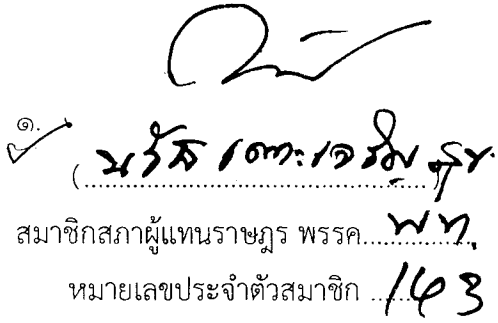 ๑.
(นริศ เตาะเจริญสุข)
สมาชิกสภาผู้แทนราษฎร พรรค พท.
หมายเลขประจำตัวสมาชิก 143